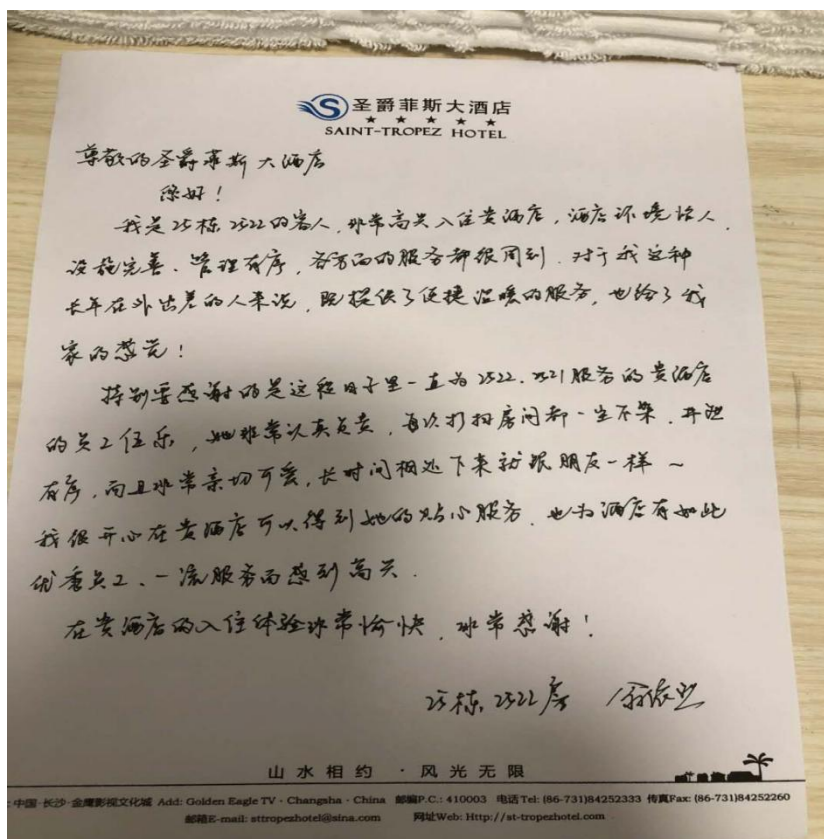 圣爵菲斯大酒店
★ ★ ★ ★ ★
SAINT-TROPEZ HOTEL
尊敬的圣爵菲斯大酒店
您好!
我是25栋2522的客人,非常高兴入住贵酒店,酒店环境怡人,
设施完善、管理有序,各方面的服务都很周到.对于我这种
长年在外出差的人来说,既提供了便捷温暖的服务,也给了我
家的感觉!
特别要感谢的是这段日子里一直为2522、2521服务的贵酒店
的员工伍乐,她非常认真负责,每次打扫房间都一尘不染、井然
有序,而且非常亲切可爱,长时间相处下来就跟朋友一样~
我很开心在贵酒店可以得到她的贴心服务,也为酒店有如此
优秀员工、一流服务而感到高兴.
在贵酒店的入住体验非常愉快,非常感谢!
25栋,2522房
山水相约 · 风光无限
:中国·长沙·金鹰影视文化城 Add: Golden Eagle TV · Changsha · China 邮编P.C.: 410003 电话Tel: (86-731)84252333 传真Fax: (86-731)84252260
邮箱E-mail: sttropezhotel@sina.com 网址Web: Http://st-tropezhotel.com